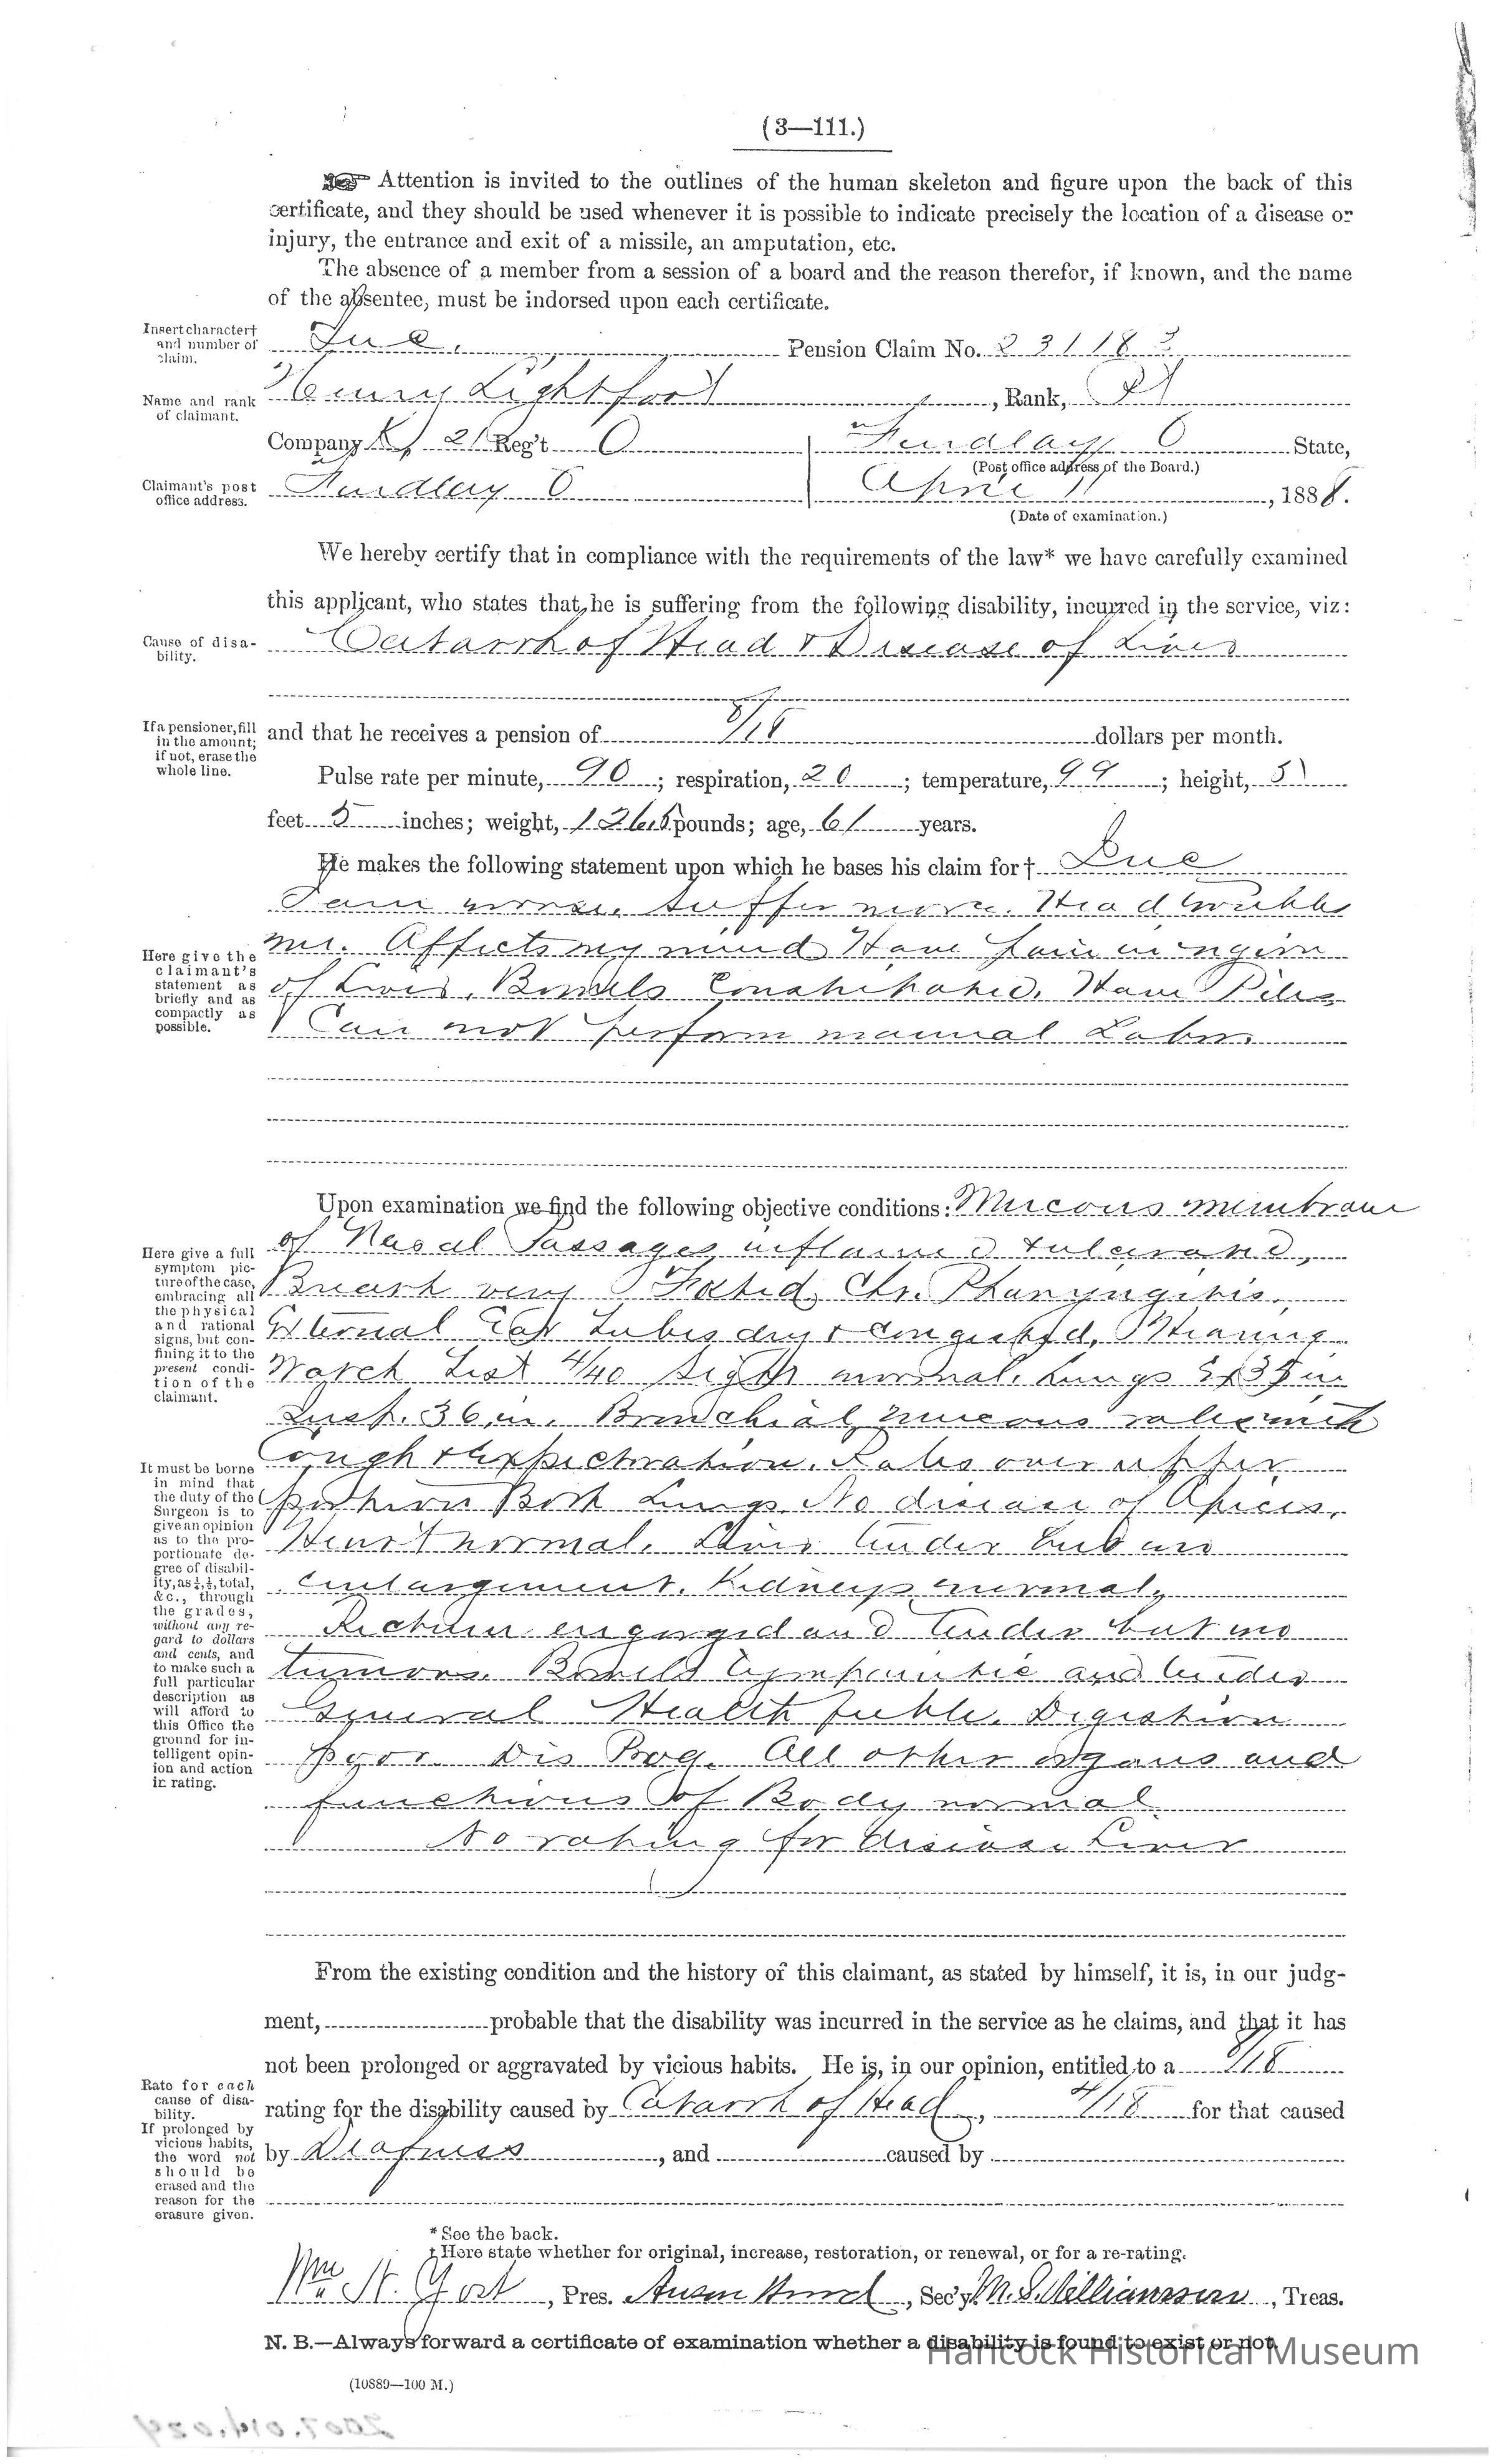 (3—111.)
Attention is invited to the outlines of the human skeleton and figure upon the back of this
certificate, and they should be used whenever it is possible to indicate precisely the location of a disease or
injury, the entrance and exit of a missile, an amputation, etc.
The absence of a member from a session of a board and the reason therefor, if known, and the name
of the absentee, must be indorsed upon each certificate.
Insert character†
and number of
claim.
Inc. Pension Claim No. 231183
Name and rank
of claimant.
Henry Lightfoot, Rank, Pt
Company K, 21 Reg't O Findlay O State,
(Post office address of the Board.)
Claimant's post
office address.
Findlay O April 11, 1888.
(Date of examination.)
We hereby certify that in compliance with the requirements of the law* we have carefully examined
this applicant, who states that he is suffering from the following disability, incurred in the service, viz:
Cause of disa-
bility.
Catarrh of Head & Disease of Liver
If a pensioner, fill
in the amount;
if not, erase the
whole line.
and that he receives a pension of 8/18 dollars per month.
Pulse rate per minute, 90; respiration, 20; temperature, 99; height, 5
feet 5 inches; weight, 126.5 pounds; age, 61 years.
He makes the following statement upon which he bases his claim for† Inc
Here give the
claimant's
statement as
briefly and as
compactly as
possible.
I am worse. Suffer more. Head troubles
me. Affects my mind Have pain in region
of Liver. Bowels Constipated. Have Piles
Can not perform manual Labor.
Upon examination we find the following objective conditions: Mucous membrane
Here give a full
symptom pic-
ture of the case,
embracing all
the physical
and rational
signs, but con-
fining it to the
present condi-
tion of the
claimant.
of Nasal Passages inflamed & ulcerated,
Breath very Foetid. Chr. Pharyngitis.
External Ear tubes dry & congested. Hearing
Watch Test 4/40 Sight normal. Lungs Ex 35 in
Insp. 36 in. Bronchial mucous rales with
Cough & Expectoration. Rales over upper
It must be borne
in mind that
the duty of the
Surgeon is to
give an opinion
as to the pro-
portionate de-
gree of disabil-
ity, as ¼, ½, total,
&c., through
the grades,
without any re-
gard to dollars
and cents, and
to make such a
full particular
description as
will afford to
this Office the
ground for in-
telligent opin-
ion and action
in rating.
portion Both Lungs. No disease of Apices.
Heart normal. Liver tender but no
enlargement. Kidneys normal.
Rectum engorged and tender but no
tumors. Bowels tympanitic and tender
General Health feeble. Digestion
poor. Dis Prog. All other organs and
functions of Body normal
No rating for disease Liver
From the existing condition and the history of this claimant, as stated by himself, it is, in our judg-
ment, probable that the disability was incurred in the service as he claims, and that it has
not been prolonged or aggravated by vicious habits. He is, in our opinion, entitled to a 8/18
Rate for each
cause of disa-
bility.
If prolonged by
vicious habits,
the word not
should be
erased and the
reason for the
erasure given.
rating for the disability caused by Catarrh of Head, 4/18 for that caused
by Deafness, and caused by
* See the back.
† Here state whether for original, increase, restoration, or renewal, or for a re-rating.
Wm H. Yost, Pres. Anson Hurd, Sec'y. M. S. Williamson, Treas.
N. B.—Always forward a certificate of examination whether a disability is found to exist or not.
Hancock Historical Museum
(10889—100 M.)
2007.014.029